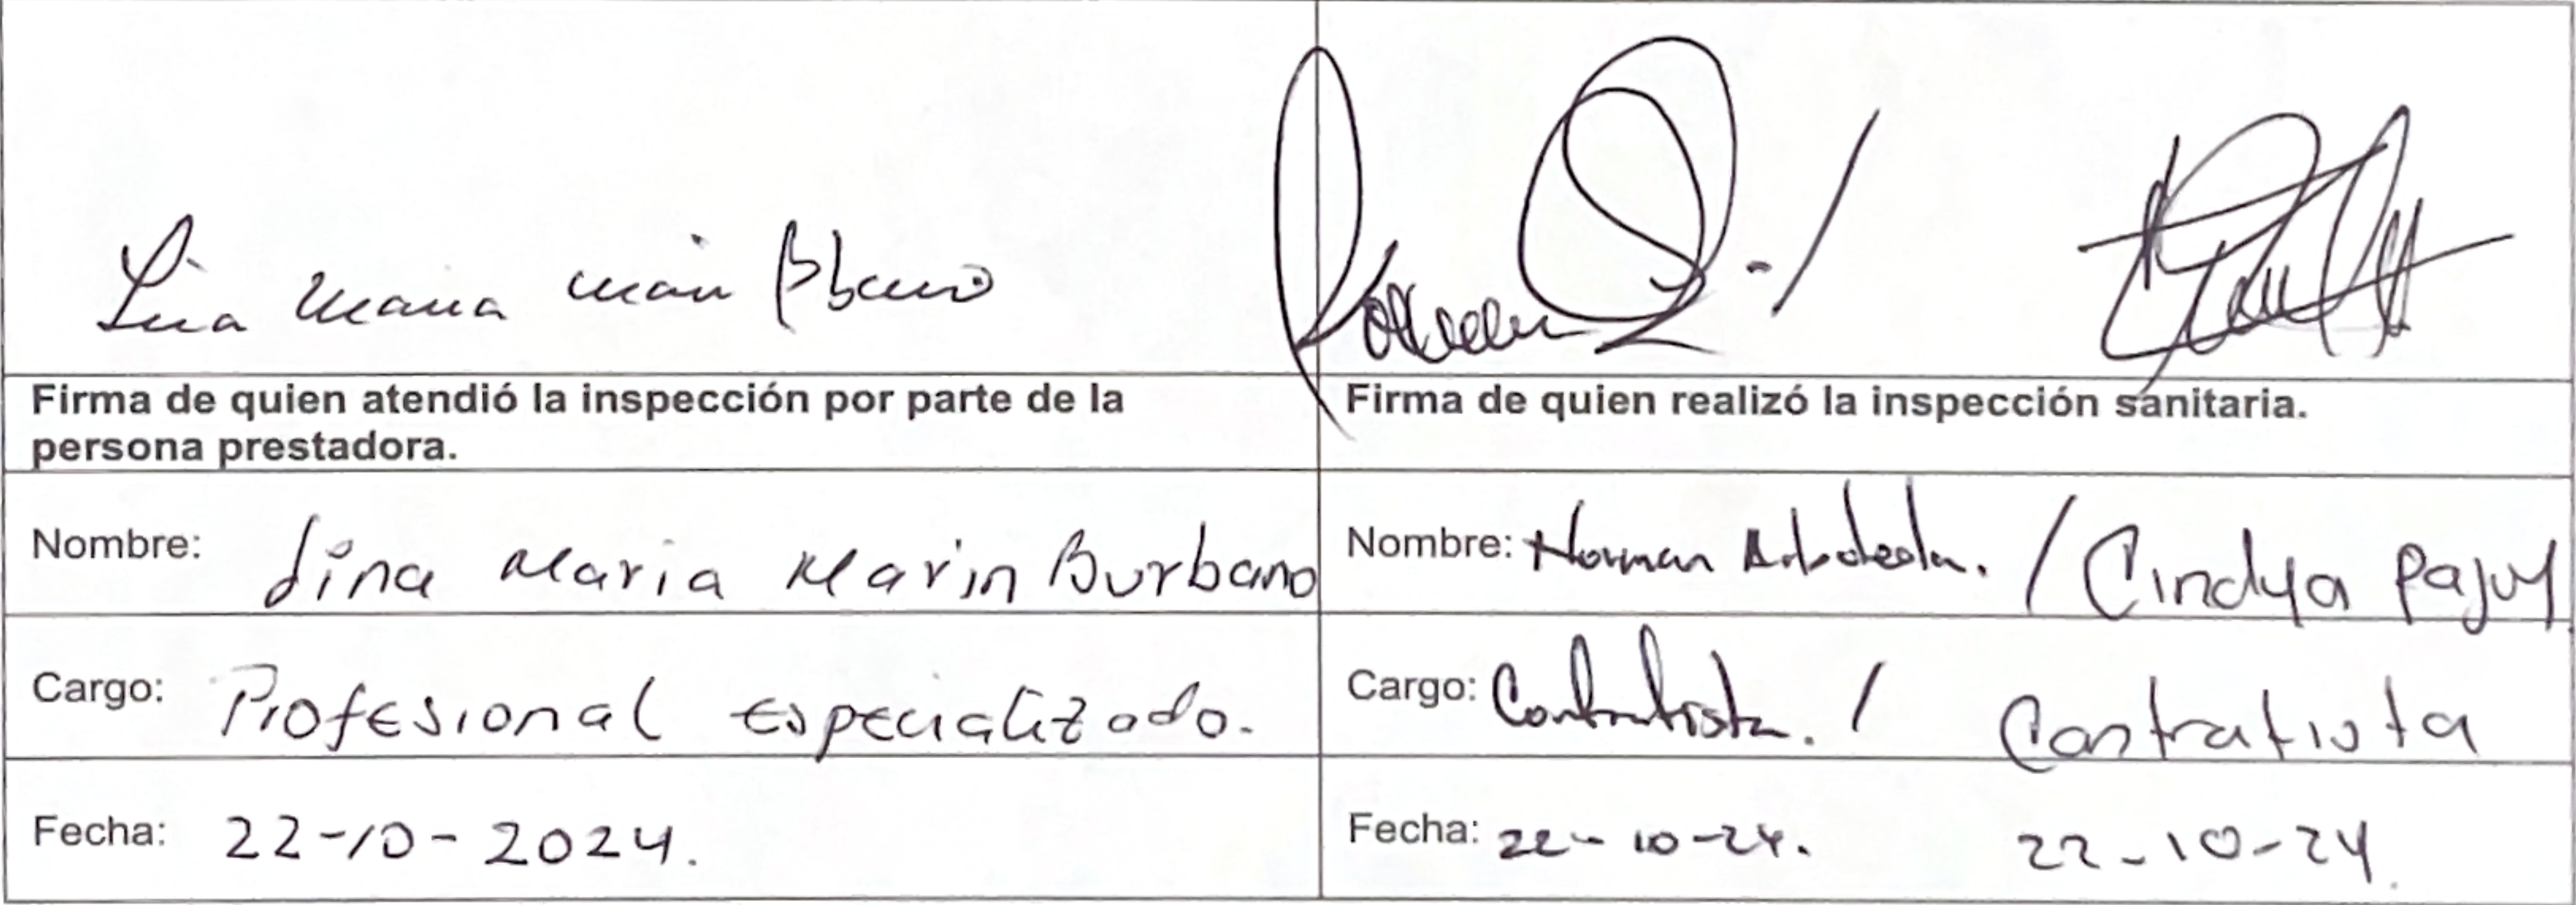 Lina Maria Marin Burbano
Firma de quien atendió la inspección por parte de la
persona prestadora.
Firma de quien realizó la inspección sanitaria.
Nombre: Lina Maria Marin Burbano
Nombre: Norman Arboleda. / Cindya Pajoy
Cargo: Profesional Especializado.
Cargo: Contratista. / Contratista
Fecha: 22-10-2024.
Fecha: 22-10-24. 22-10-24